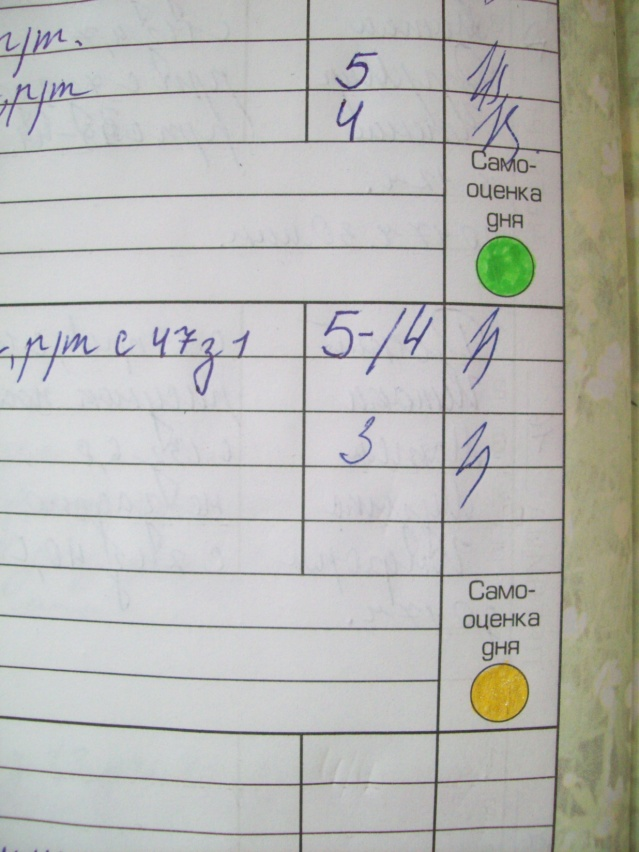 р/т.
р/т 5
4
Само-
оценка
дня
р/т с 47 з 1 5-/4
3
Само-
оценка
дня